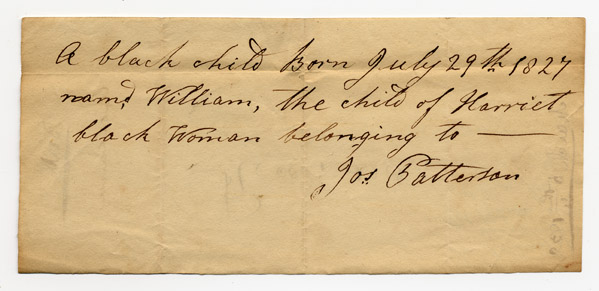 A black child Born July 29th 1827
namd William, the child of Harriet
black Woman belonging to —
Jos Patterson